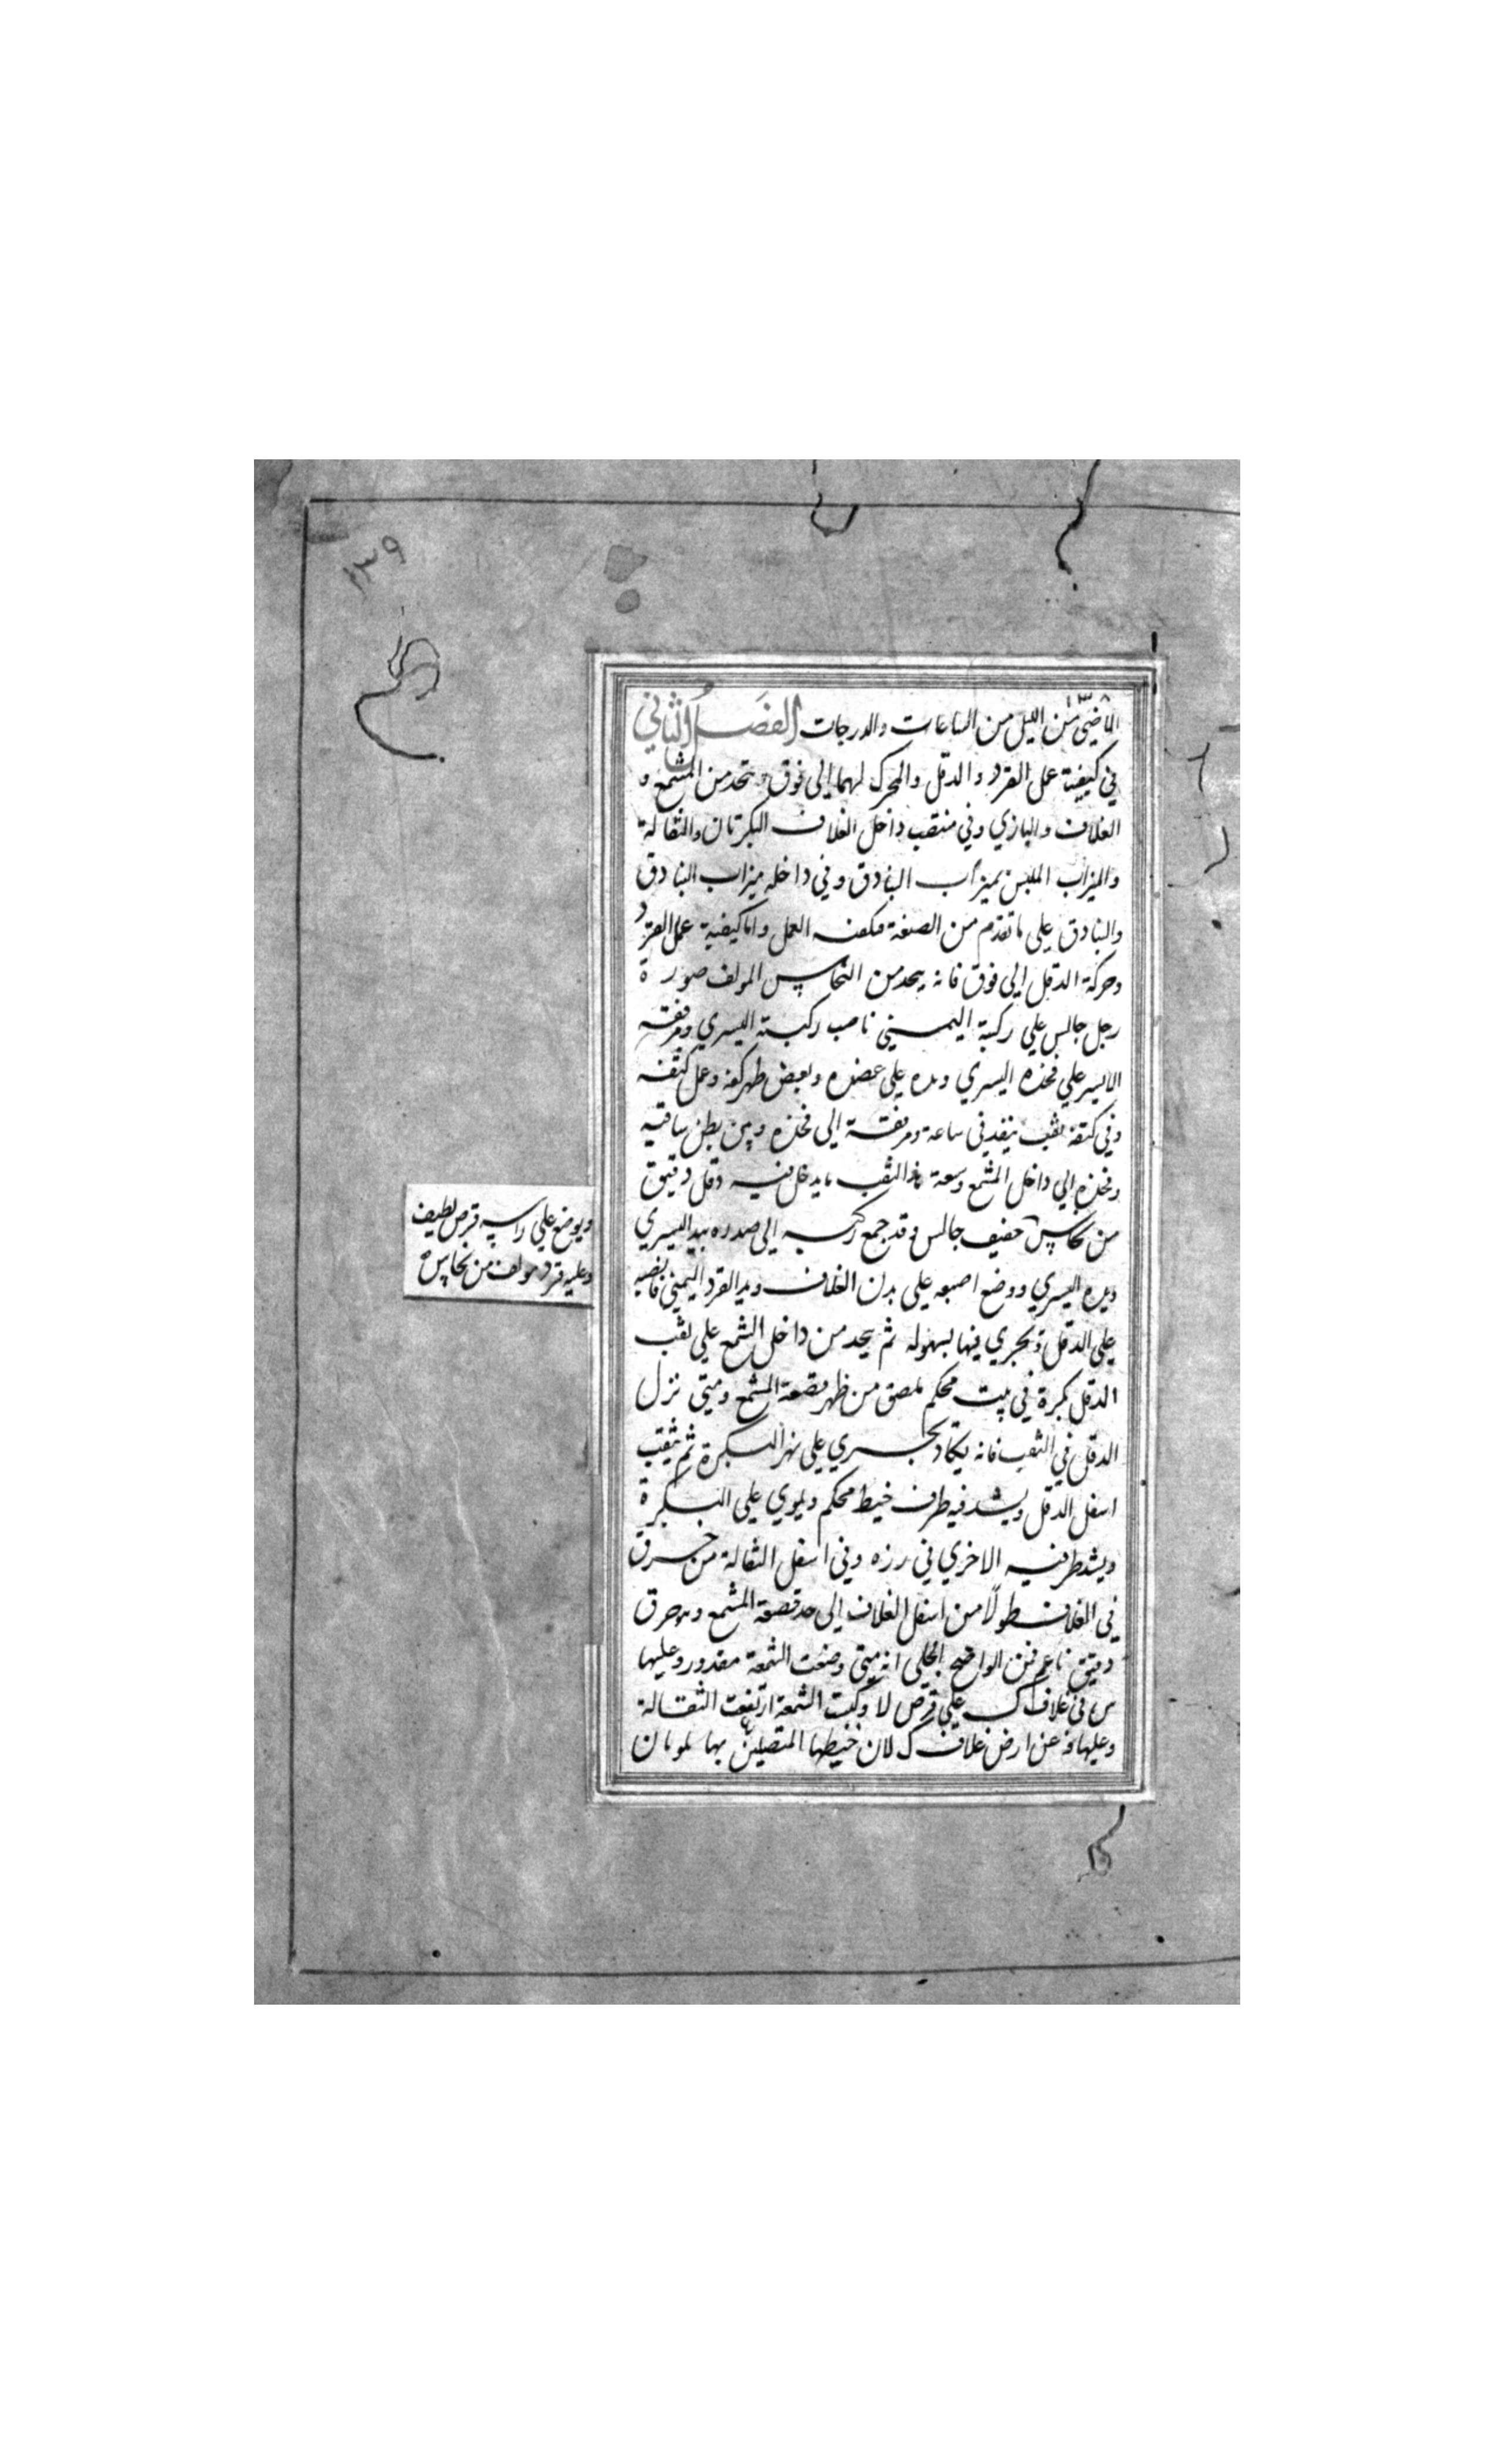 ١٣٩
١٣٨
الماضي من الليل من الساعات والدرجات الفصل الثاني
في كيفية عمل القرد والدقل والمحرك لهما إلى فوق يتخذ من المشمع و
الغلاف والبازي وفي منتقب داخل الغلاف البكرتان والثقالة
والميزاب الملبس بميزاب البنادق وفي داخله ميزاب البنادق
والبنادق على ما تقدم من الصنعة العمل واما كيفية عمل القرد
وحركة الدقل إلى فوق فانه يتخذ من النحاس المولف صورة
رجل جالس علي ركبة اليمني ناصب ركبته اليسري ومرفقه
الايسر علي فخذه اليسري ويده علي عضده وبعض ظهر كفه وعمل كتفه
وفي كتفه ثقب ينفد في ساعة ومرفقة إلى فخذه ومن بطن ساقيه
وفخذه إلي داخل المشمع وسعة هذا الثقب ما يدخل فيه دقل دقيق
من نحاس خفيف جالس وقد جمع ركبتيه إلى صدره بيد اليسري
ويده اليسري ووضع اصبعه على بدن الغلاف ويد القرد اليمني قابضه
علي الدقل ويجري فيها بسهوله ثم يتخد من داخل الشمع علي ثقب
الدقل بكرة في بيت محكم ملصق من ظهر قصعة المشمع ومتى نزل
الدقل في الثقب فانه يكاد يجري علي نهر البكرة ثم يثقب
اسفل الدقل ويشد فيه طرف خيط محكم ويلوي علي البكرة
ويشد طرفيه الاخري في رزه وفي اسفل الثقالة من خرق
في الغلاف طولًا من اسفل الغلاف إلى حد قصعة المشمع وهو خرق
دقيق ناعم فمن الواضح الجلي انه متى وضعت الشمعة مقدور وعليها
س في غلاف ك علي قرص لا وكبت الشمعة ارتفعت الثقالة
وعليها عن ارض غلاف ك لان خيطها المتصلين بها ملويان
ويوضع علي راسه قرص لطيف
وعليه قرد مولف من نحاس